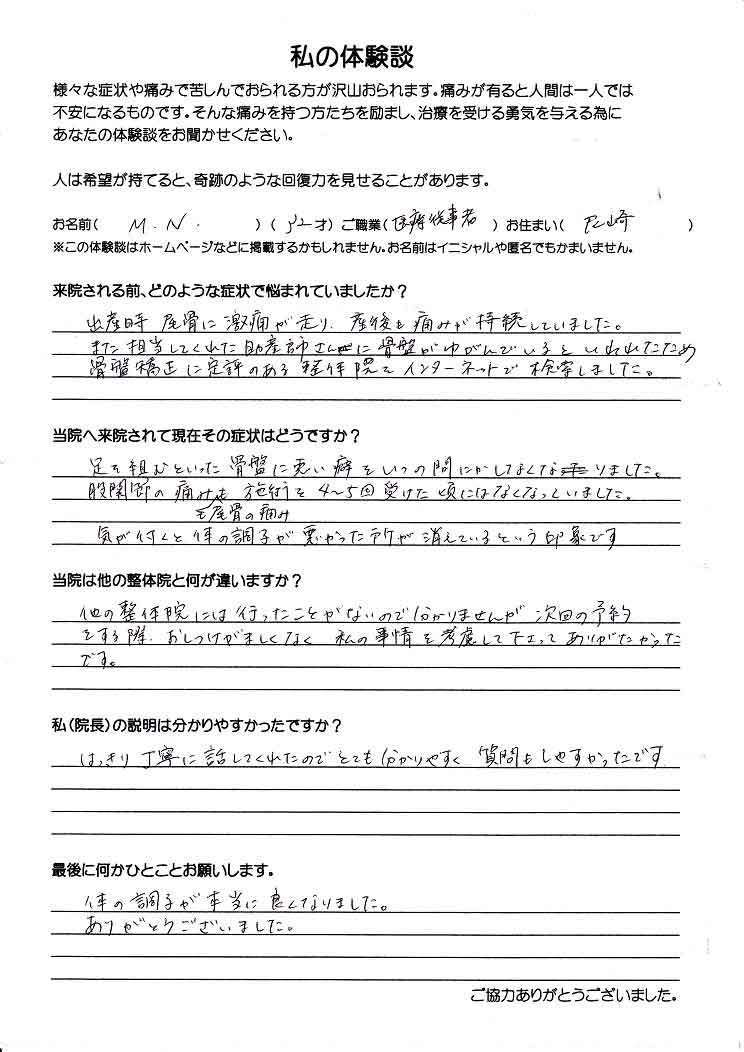 私の体験談
様々な症状や痛みで苦しんでおられる方が沢山おられます。痛みが有ると人間は一人では
不安になるものです。そんな痛みを持つ方たちを励まし、治療を受ける勇気を与える為に
あなたの体験談をお聞かせください。
人は希望が持てると、奇跡のような回復力を見せることがあります。
お名前( M.N. ) ( 才) ご職業(医療従事者) お住まい( 尼崎 )
※この体験談はホームページなどに掲載するかもしれません。お名前はイニシャルや匿名でもかまいません。
来院される前、どのような症状で悩まれていましたか?
出産時 尾骨に激痛が走り、産後も痛みが持続していました。
また担当してくれた助産師さんに骨盤がゆがんでいるといわれたため
骨盤矯正に定評のある整体院をインターネットで検索しました。
当院へ来院されて現在その症状はどうですか?
足を組むといった骨盤に悪い癖をいつの間にかしなくなりました。
股関節の痛みも 施術を4〜5回受けた頃にはなくなっていました。
も尾骨の痛み
気が付くと体の調子が悪かった所が消えているという印象です
当院は他の整体院と何が違いますか?
他の整体院には行ったことがないので分かりませんが 次回の予約
をする際、おしつけがましくなく 私の事情を考慮して下さって ありがたかった
です。
私(院長)の説明は分かりやすかったですか?
はっきり丁寧に話してくれたのでとても分かりやすく 質問もしやすかったです
最後に何かひとことお願いします。
体の調子が本当に良くなりました。
ありがとうございました。
ご協力ありがとうございました。